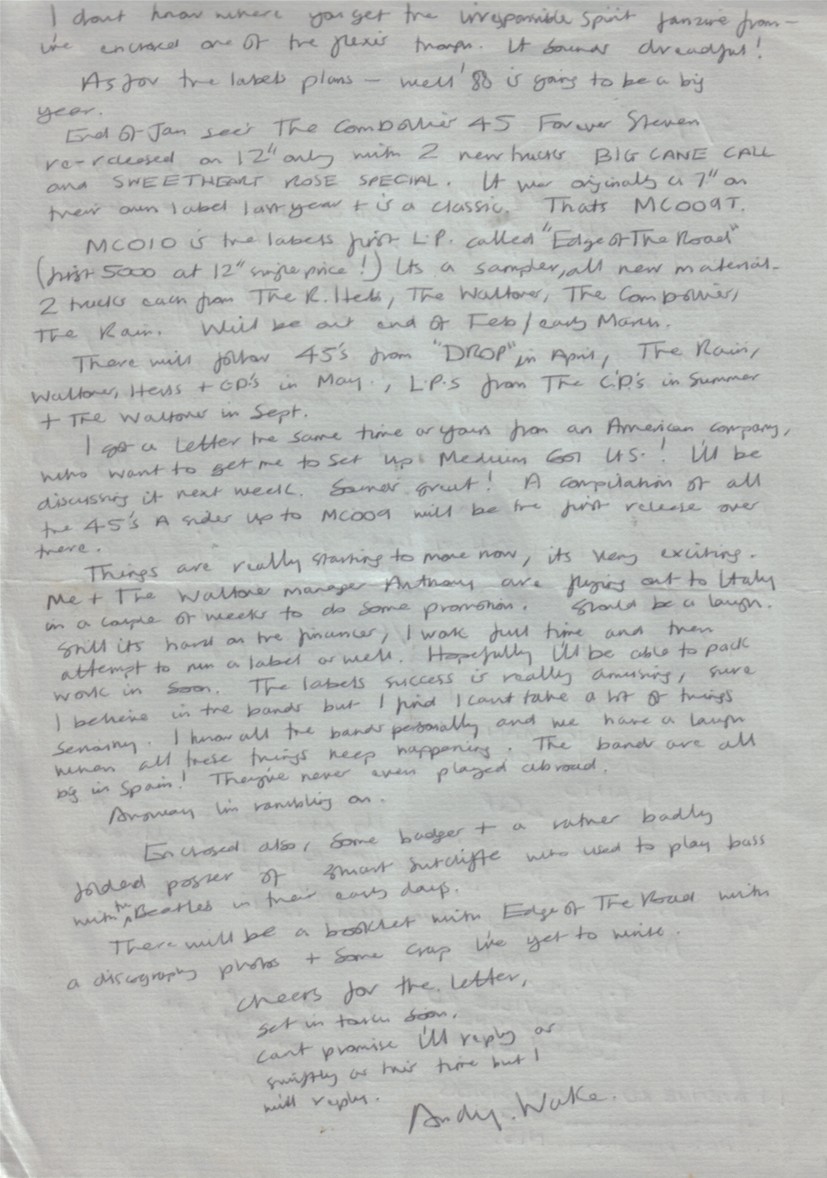 I dont know where you get the irresponsible Spirit fanzine from -
ive enclosed one of the flexis though. It sounds dreadful!
As for the labels plans - well '88 is going to be a big
year.
End of Jan sees The Combottier 45 Forever Steven
re-released on 12" only with 2 new tracks BIG CANE CALL
and SWEETHEART ROSE SPECIAL. It was originally a 7" on
their own label last year + is a classic. Thats MC009T.
MC010 is the labels first L.P. called "Edge of The Road"
(first 5000 at 12" single price!) Its a sampler, all new material -
2 tracks each from The R. Hebs, The Waltones, The Combottier,
The Rain. Will be out end of Feb/early March.
There will follow 45's from "DROP" in April, The Rain,
Waltones, + CP's in May., L.P.s from The C.P.'s in Summer
+ The Waltones in Sept.
I got a letter the same time as yours from an American company,
who want to get me to set up Medium Cool U.S.! I'll be
discussing it next week. Sounds great! A compilation of all
the 45's A sides up to MC009 will be the first release over
there.
Things are really starting to move now, its very exciting.
Me + The Waltones manager Anthony are flying out to Italy
in a couple of weeks to do some promotion. Should be a laugh.
Still its hard on the finances, I work full time and then
attempt to run a label as well. Hopefully I'll be able to pack
work in soon. The labels success is really amusing, sure
I believe in the bands but I find I cant take a lot of things
seriously. I know all the bands personally and we have a laugh
when all these things keep happening. The bands are all
big in Spain! They've never even played abroad.
Anyway I'm rambling on.
Enclosed also, some badges + a rather badly
folded poster of Stuart Sutcliffe who used to play bass
with the Beatles in their early days.
There will be a booklet with Edge of The Road with
a discography photos + some crap I've yet to write.
Cheers for the letter,
get in touch soon,
cant promise I'll reply as
swiftly as this time but I
will reply.
Andy. Wake.